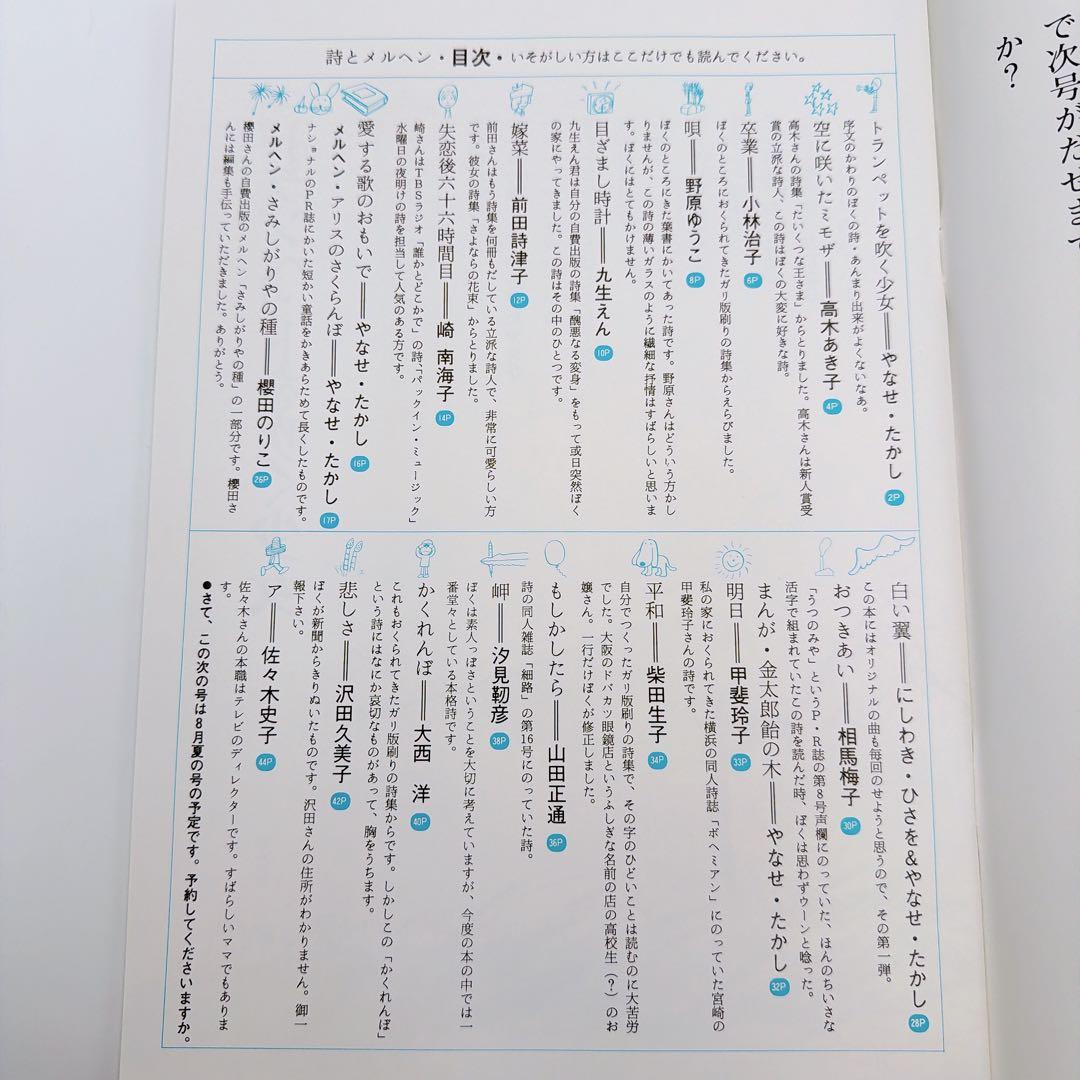 で次号がだせます
か?
詩とメルヘン・目次・いそがしい方はここだけでも読んでください。
トランペットを吹く少女══やなせ・たかし 2P
序文のかわりのぼくの詩・あんまり出来がよくないなあ。
空に咲いたミモザ══高木あき子 4P
高木さんの詩集「たいくつな王さま」からとりました。高木さんは新人賞受
賞の立派な詩人、この詩はぼくの大変に好きな詩。
卒業══小林治子 6P
ぼくのところにおくられてきたガリ版刷りの詩集からえらびました。
唄══野原ゆうこ 8P
ぼくのところにきた葉書にかいてあった詩です。野原さんはどういう方かし
りませんが、この詩の薄いガラスのように繊細な抒情はすばらしいと思いま
す。ぼくにはとてもかけません。
目ざまし時計══九生えん 10P
九生えん君は自分の自費出版の詩集「醜悪なる変身」をもって或日突然ぼく
の家にやってきました。この詩はその中のひとつです。
嫁菜══前田詩津子 12P
前田さんはもう詩集を何冊もだしている立派な詩人で、非常に可愛らしい方
です。彼女の詩集「さよならの花束」からとりました。
失恋後六十六時間目══崎 南海子 14P
崎さんはTBSラジオ「誰かとどこかで」の詩、「パックイン・ミュージック」
水曜日の夜明けの詩を担当して人気のある方です。
愛する歌のおもいで══やなせ・たかし 16P
メルヘン・アリスのさくらんぼ══やなせ・たかし 17P
ナショナルのPR誌にかいた短かい童話をかきあらためて長くしたものです。
メルヘン・さみしがりやの種══櫻田のりこ 26P
櫻田さんの自費出版のメルヘン「さみしがりやの種」の一部分です。櫻田さ
んには編集も手伝っていただきました。ありがとう。
白い翼══にしわき・ひさを&やなせ・たかし 28P
この本にはオリジナルの曲も毎回のせようと思うので、その第一弾。
おつきあい══相馬梅子 30P
「うつのみや」というP・R誌の第8号声欄にのっていた、ほんのちいさな
活字で組まれていたこの詩を読んだ時、ぼくは思わずウーンと唸った。
まんが・金太郎飴の木══やなせ・たかし 32P
明日══甲斐玲子 33P
私の家におくられてきた横浜の同人詩誌「ボヘミアン」にのっていた宮崎の
甲斐玲子さんの詩です。
平和══柴田生子 34P
自分でつくったガリ版刷りの詩集で、その字のひどいことは読むのに大苦労
でした。大阪のドバカツ眼鏡店というふしぎな名前の店の高校生(?)のお
嬢さん。一行だけぼくが修正しました。
もしかしたら══山田正通 36P
詩の同人雑誌「細路」の第16号にのっていた詩。
岬══汐見靭彦 38P
ぼくは素人っぽさということを大切に考えていますが、今度の本の中では一
番堂々としている本格詩です。
かくれんぼ══大西 洋 40P
これもおくられてきたガリ版刷りの詩集からです。しかしこの「かくれんぼ」
という詩にはなにか哀切なものがあって、胸をうちます。
悲しさ══沢田久美子 42P
ぼくが新聞からきりぬいたものです。沢田さんの住所がわかりません。御一
報下さい。
ア══佐々木史子 44P
佐々木さんの本職はテレビのディレクターです。すばらしいママでもありま
す。
●さて、この次の号は8月夏の号の予定です。予約してくださいますか。